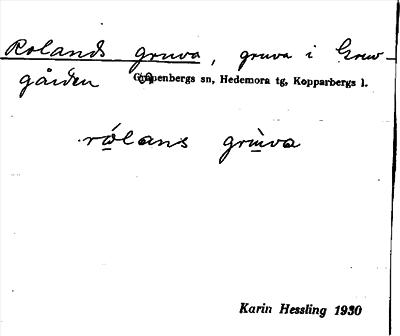 Rolands gruva, gruva i Gruv-
gården Garpenbergs sn, Hedemora tg, Kopparbergs l.
rólans grùva
Karin Hessling 1930